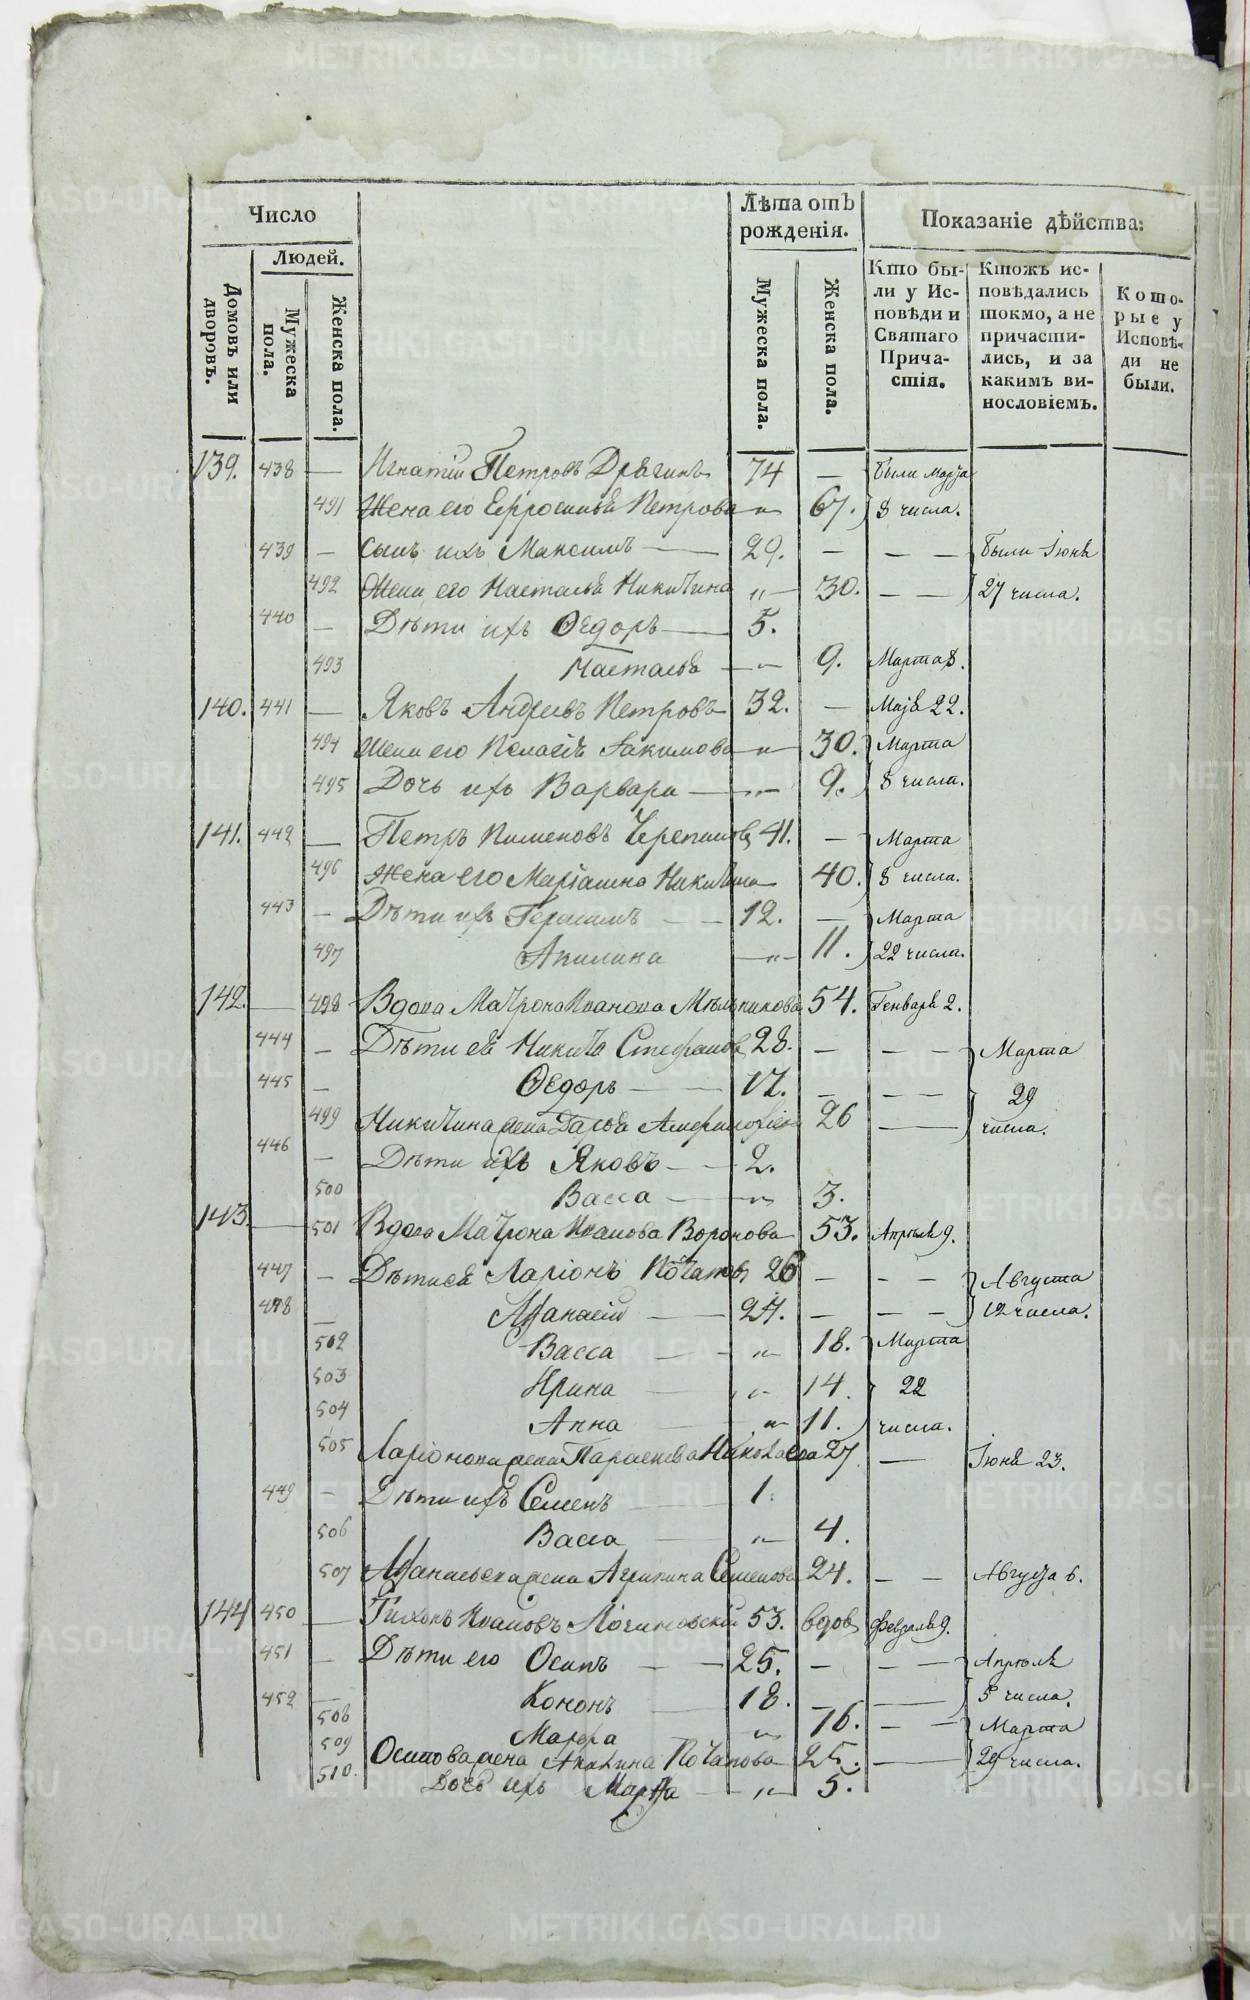 Число
Людей.
Домовъ или дворовъ.
Мужеска пола.
Женска пола.
Лѣта отъ рожденія.
Мужеска пола.
Женска пола.
Показаніе дѣйства:
Кто бы-
ли у Ис-
повѣди и
Святаго
Прича-
стія.
Ктожъ ис-
повѣдались
токмо, а не
причасти-
лись, и за
какимъ ви-
нословіемъ.
Кото-
рые у
Исповѣ-
ди не
были.
139. 438 — Игнатій Петровъ 74 — были Марта
491 Жена его Петрова „ 67. 8 числа.
439 — Сынъ ихъ Максимъ — 29. — — — были Іюня
492 Жена его Настасья Никитина „ 30. — — 27 числа.
440 — Дѣти ихъ Ѳедоръ — 5.
493 Настасья — „ 9. Марта 8.
140. 441 — Яковъ Андреевъ Петровъ 32. — Маія 22.
494 Жена его Пелагія „ 30. Марта
495 Дочь ихъ Варвара — „ 9. 8 числа.
141. 442 — Петръ Пименовъ 41. — Марта
496 Жена его Никитина 40. 8 числа.
443 — Дѣти ихъ Герасимъ — 12. — Марта
497 Акилина — „ 11. 22 числа.
142. — 498 Вдова Матрона Иванова 54. Генваря 2.
444 — Дѣти ея Никита 28. — — — Марта
445 — Ѳедоръ — 17. — — — 29
499 Никитина жена Дарья 26 — числа.
446 — Дѣти ихъ Яковъ — 2.
500 Васса — „ 3.
143. — 501 Вдова Матрона Иванова Воронова 53. Апрѣля 9.
447 — Дѣти ея Ларіонъ 26 — — — Августа
448 — Афанасій — 24. — — — 12 числа.
502 Васса — „ 18. Марта
503 Ирина — „ 14. 22
504 Анна — „ 11. числа.
505 Ларіонова жена Параскева 27. — Іюня 23.
449 — Дѣти ихъ Семенъ — 1.
506 Васса — „ 4.
507 Афанасьева жена Агрипина Семенова 24. — — Августа 6.
144 450 — Тихонъ Ивановъ 53. вдовъ февраля 9.
451 — Дѣти его Осипъ — 25. — — — Апрѣля
452 — Кононъ 18. — — 5 числа.
508 Марфа „ 16. — — Марта
509 Осипова жена 25. — 29 числа.
510. Дочь ихъ Марфа — „ 5.
METRIKI.GASO-URAL.RU